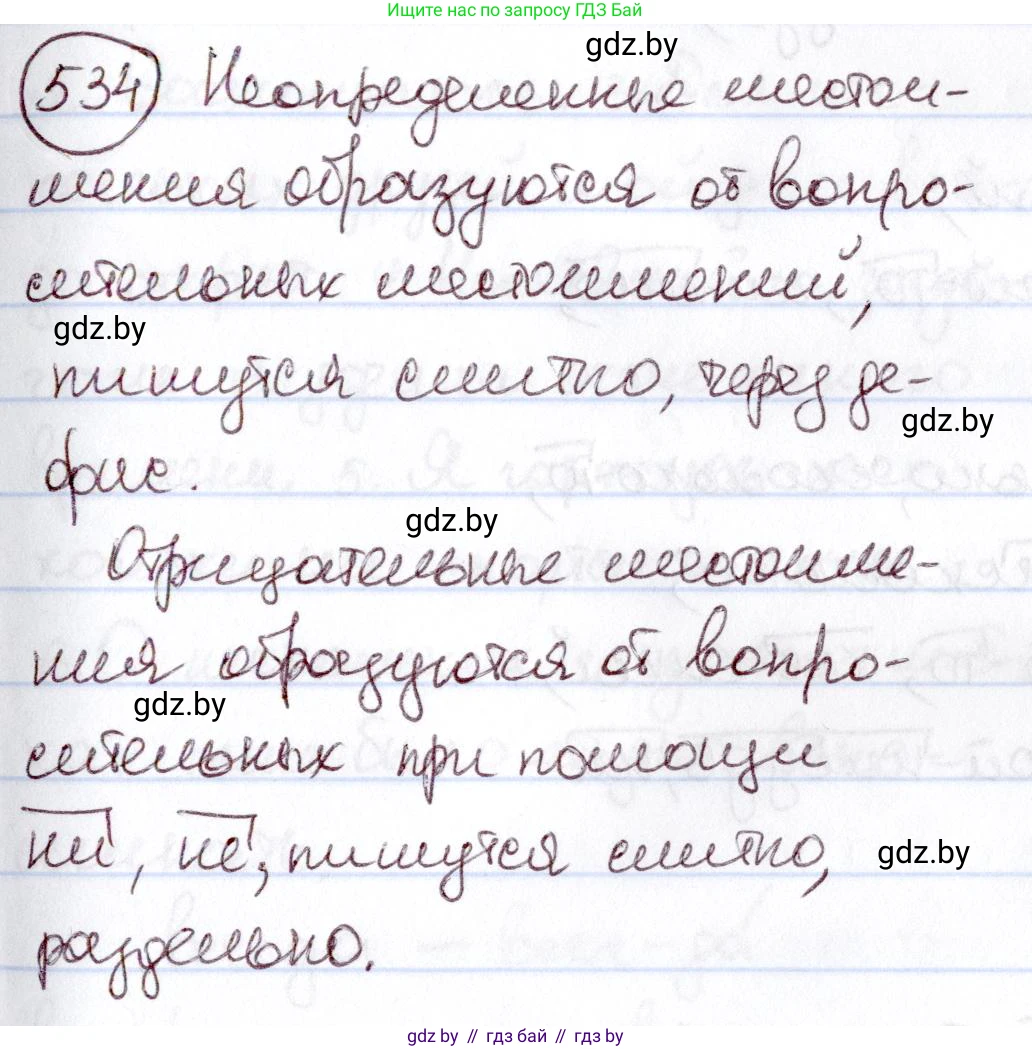 Ищите нас по запросу ГДЗ Бай
gdz.by
534 Неопределенные местои-
мения образуются от вопро-
сительных местоимений,
gdz.by
пишутся слитно, через де-
gdz.by
фис.
gdz.by
Отрицательные местоиме-
ния образуются от вопро-
gdz.by
сительных при помощи
ни, не, пишутся слитно,
gdz.by
раздельно.
gdz.by // gdz бай // gdz.by